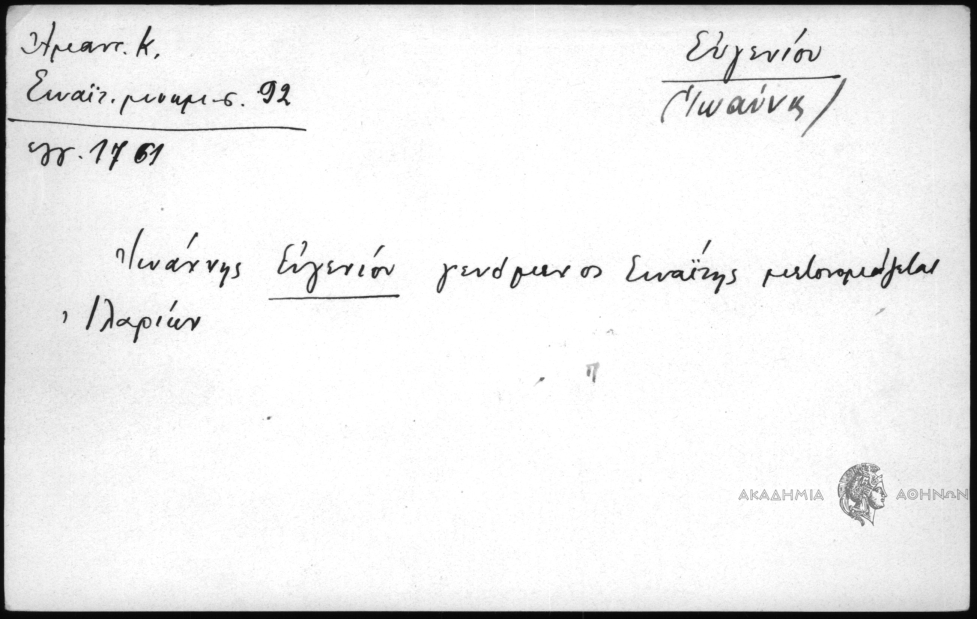 Ἄμαντ. Κ.
Σιναϊτ. μνημ. σ. 92
ἔγγ. 1761
Εὐγενίου
(Ἰωάννης)
Ἰωάννης Εὐγενίου γενόμενος Σιναΐτης μετονομάζεται
Ἱλαρίων
ΑΚΑΔΗΜΙΑ ΑΘΗΝΩΝ